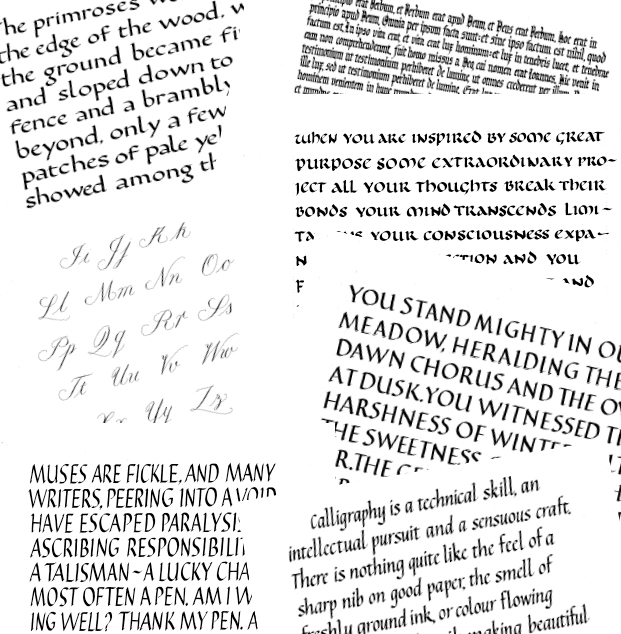 The primroses
the edge of the wood,
the ground became
and sloped down to
fence and a brambly
beyond, only a few
patches of pale
showed among
erat Verbum, et Verbum erat apud Deum, et Deus erat Verbum. Hoc erat in
principio apud Deum. Omnia per ipsum facta sunt: et sine ipso factum est nihil, quod
factum est. In ipso vita erat, et vita erat lux hominum: et lux in tenebris lucet, et tenebrae
eam non comprehenderunt. Fuit homo missus a Deo cui nomen erat Joannes. Hic venit in
testimonium ut testimonium perhiberet de lumine, ut omnes crederent per illum.
ille lux, sed ut testimonium perhiberet de lumine. Erat
hominem venientem in hunc
WHEN YOU ARE INSPIRED BY SOME GREAT
PURPOSE SOME EXTRAORDINARY PRO-
JECT ALL YOUR THOUGHTS BREAK THEIR
BONDS YOUR MIND TRANSCENDS LIMI-
YOUR CONSCIOUSNESS EXPA-
AND YOU
Ii Jj Kk
Ll Mm Nn Oo
Pp Qq Rr Ss
Tt Uu Vv Ww
Yy Zz
YOU STAND MIGHTY IN
MEADOW, HERALDING THE
DAWN CHORUS AND THE
AT DUSK. YOU WITNESSED
HARSHNESS OF
THE SWEETNESS
MUSES ARE FICKLE, AND MANY
WRITERS, PEERING INTO A VOID
HAVE ESCAPED
ASCRIBING
A TALISMAN ~ A LUCKY
MOST OFTEN A PEN. AM I
ING WELL? THANK MY PEN. A
Calligraphy is a technical skill, an
intellectual pursuit and a sensuous craft.
There is nothing quite like the feel of a
sharp nib on good paper, the smell of
freshly ground ink, or colour flowing
making beautiful